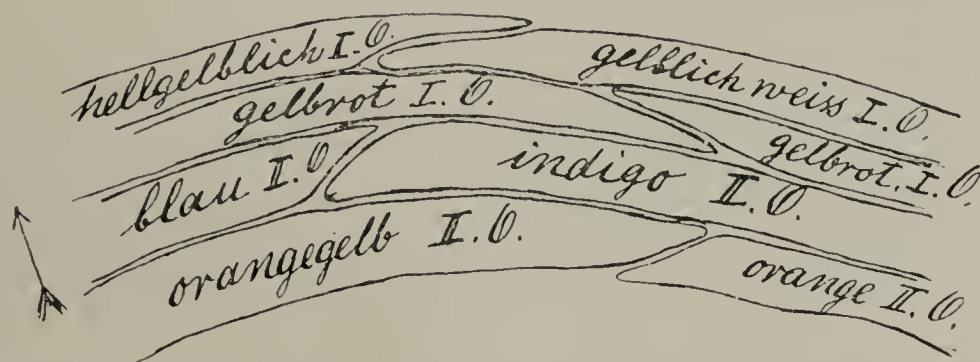 hellgelblich I. O.
gelblich weiss I. O.
gelbrot I. O.
gelbrot. I. O.
blau II. O.
indigo II. O.
orangegelb II. O.
orange II. O.